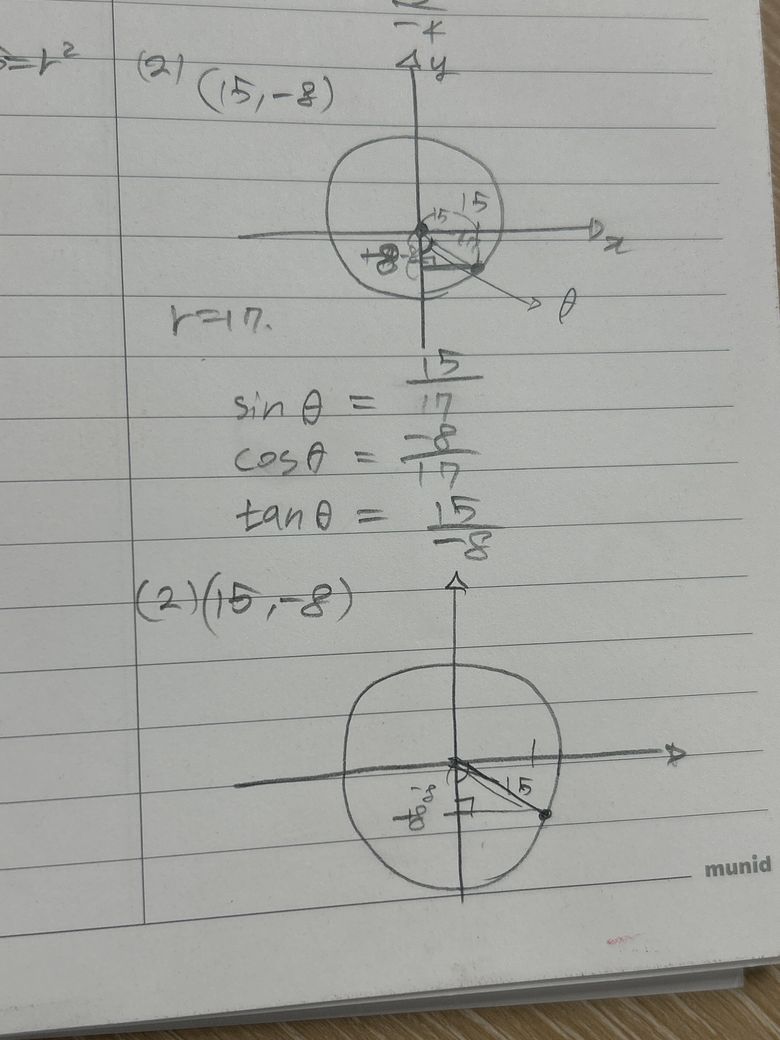 -x
=r²
(2) (15, -8)
y
15
15
-8
x
r=17.
θ
sin θ = 15/17
cos θ = -8/17
tan θ = 15/-8
(2) (15, -8)
15
-8
munid